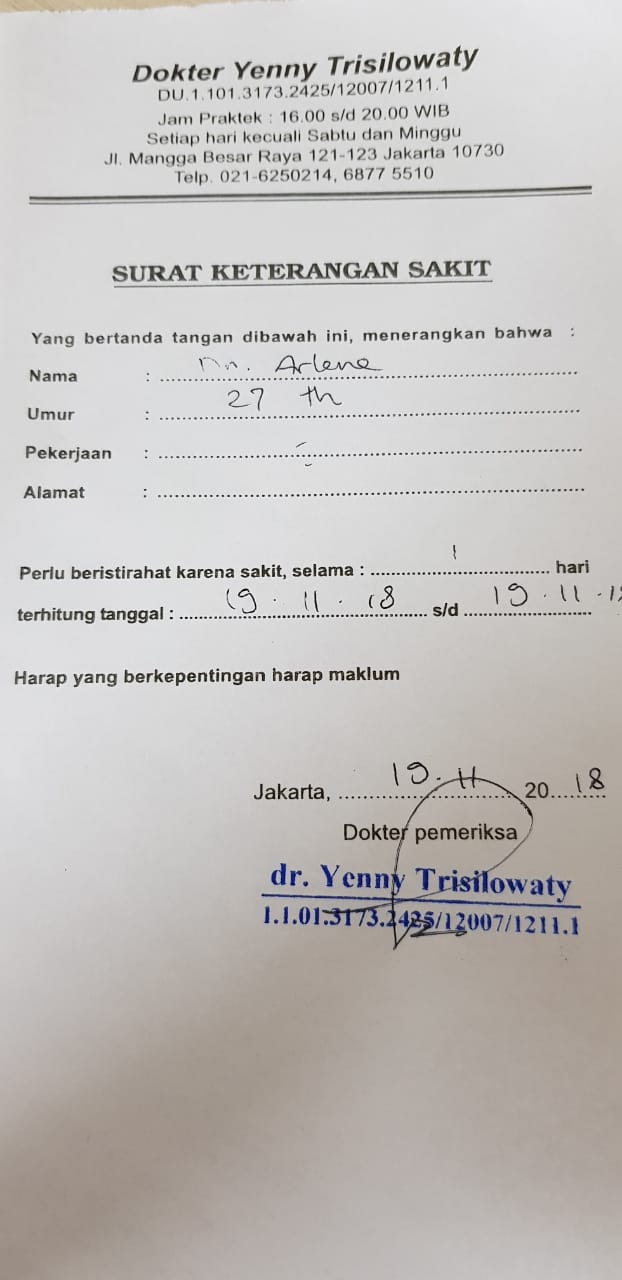 Dokter Yenny Trisilowaty
DU.1.101.3173.2425/12007/1211.1
Jam Praktek : 16.00 s/d 20.00 WIB
Setiap hari kecuali Sabtu dan Minggu
Jl. Mangga Besar Raya 121-123 Jakarta 10730
Telp. 021-6250214, 6877 5510
SURAT KETERANGAN SAKIT
Yang bertanda tangan dibawah ini, menerangkan bahwa :
Nama : Nn. Arlene
Umur : 27 th
Pekerjaan : -
Alamat :
Perlu beristirahat karena sakit, selama : 1 hari
terhitung tanggal : 19 . 11 . 18 s/d 19 . 11 .
Harap yang berkepentingan harap maklum
Jakarta, 19 . 11 2018
Dokter pemeriksa
dr. Yenny Trisilowaty
1.1.01.3173.2425/12007/1211.1